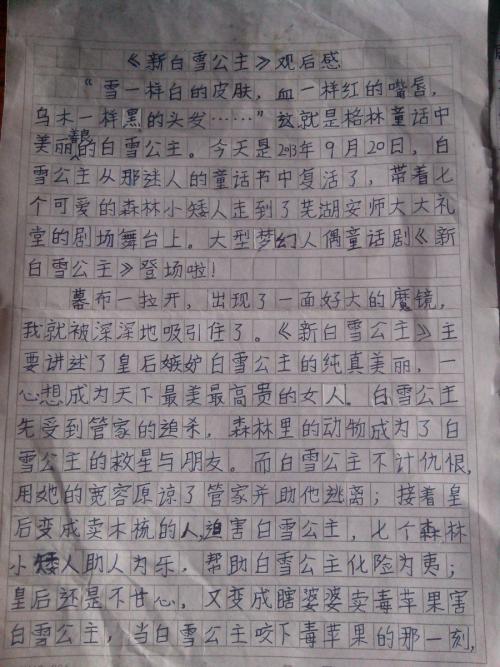 《新白雪公主》观后感
“雪一样白的皮肤，血一样红的嘴唇，
乌木一样黑的头发……”这就是格林童话中
美丽善良的白雪公主。今天是2013年9月20日，白
雪公主从那迷人的童话书中复活了，带着七
个可爱的森林小矮人走到了芜湖安师大大礼
堂的剧场舞台上。大型梦幻人偶童话剧《新
白雪公主》登场啦！
幕布一拉开，出现了一面好大的魔镜，
我就被深深地吸引住了。《新白雪公主》主
要讲述了皇后嫉妒白雪公主的纯真美丽，一
心想成为天下最美最高贵的女人。白雪公主
先受到管家的追杀，森林里的动物成为了白
雪公主的救星与朋友。而白雪公主不计仇恨，
用她的宽容原谅了管家并助他逃离；接着皇
后变成卖木梳的人，迫害白雪公主，七个森林
小矮人助人为乐，帮助白雪公主化险为夷；
皇后还是不甘心，又变成瞎婆婆卖毒苹果害
白雪公主，当白雪公主咬下毒苹果的那一刻，